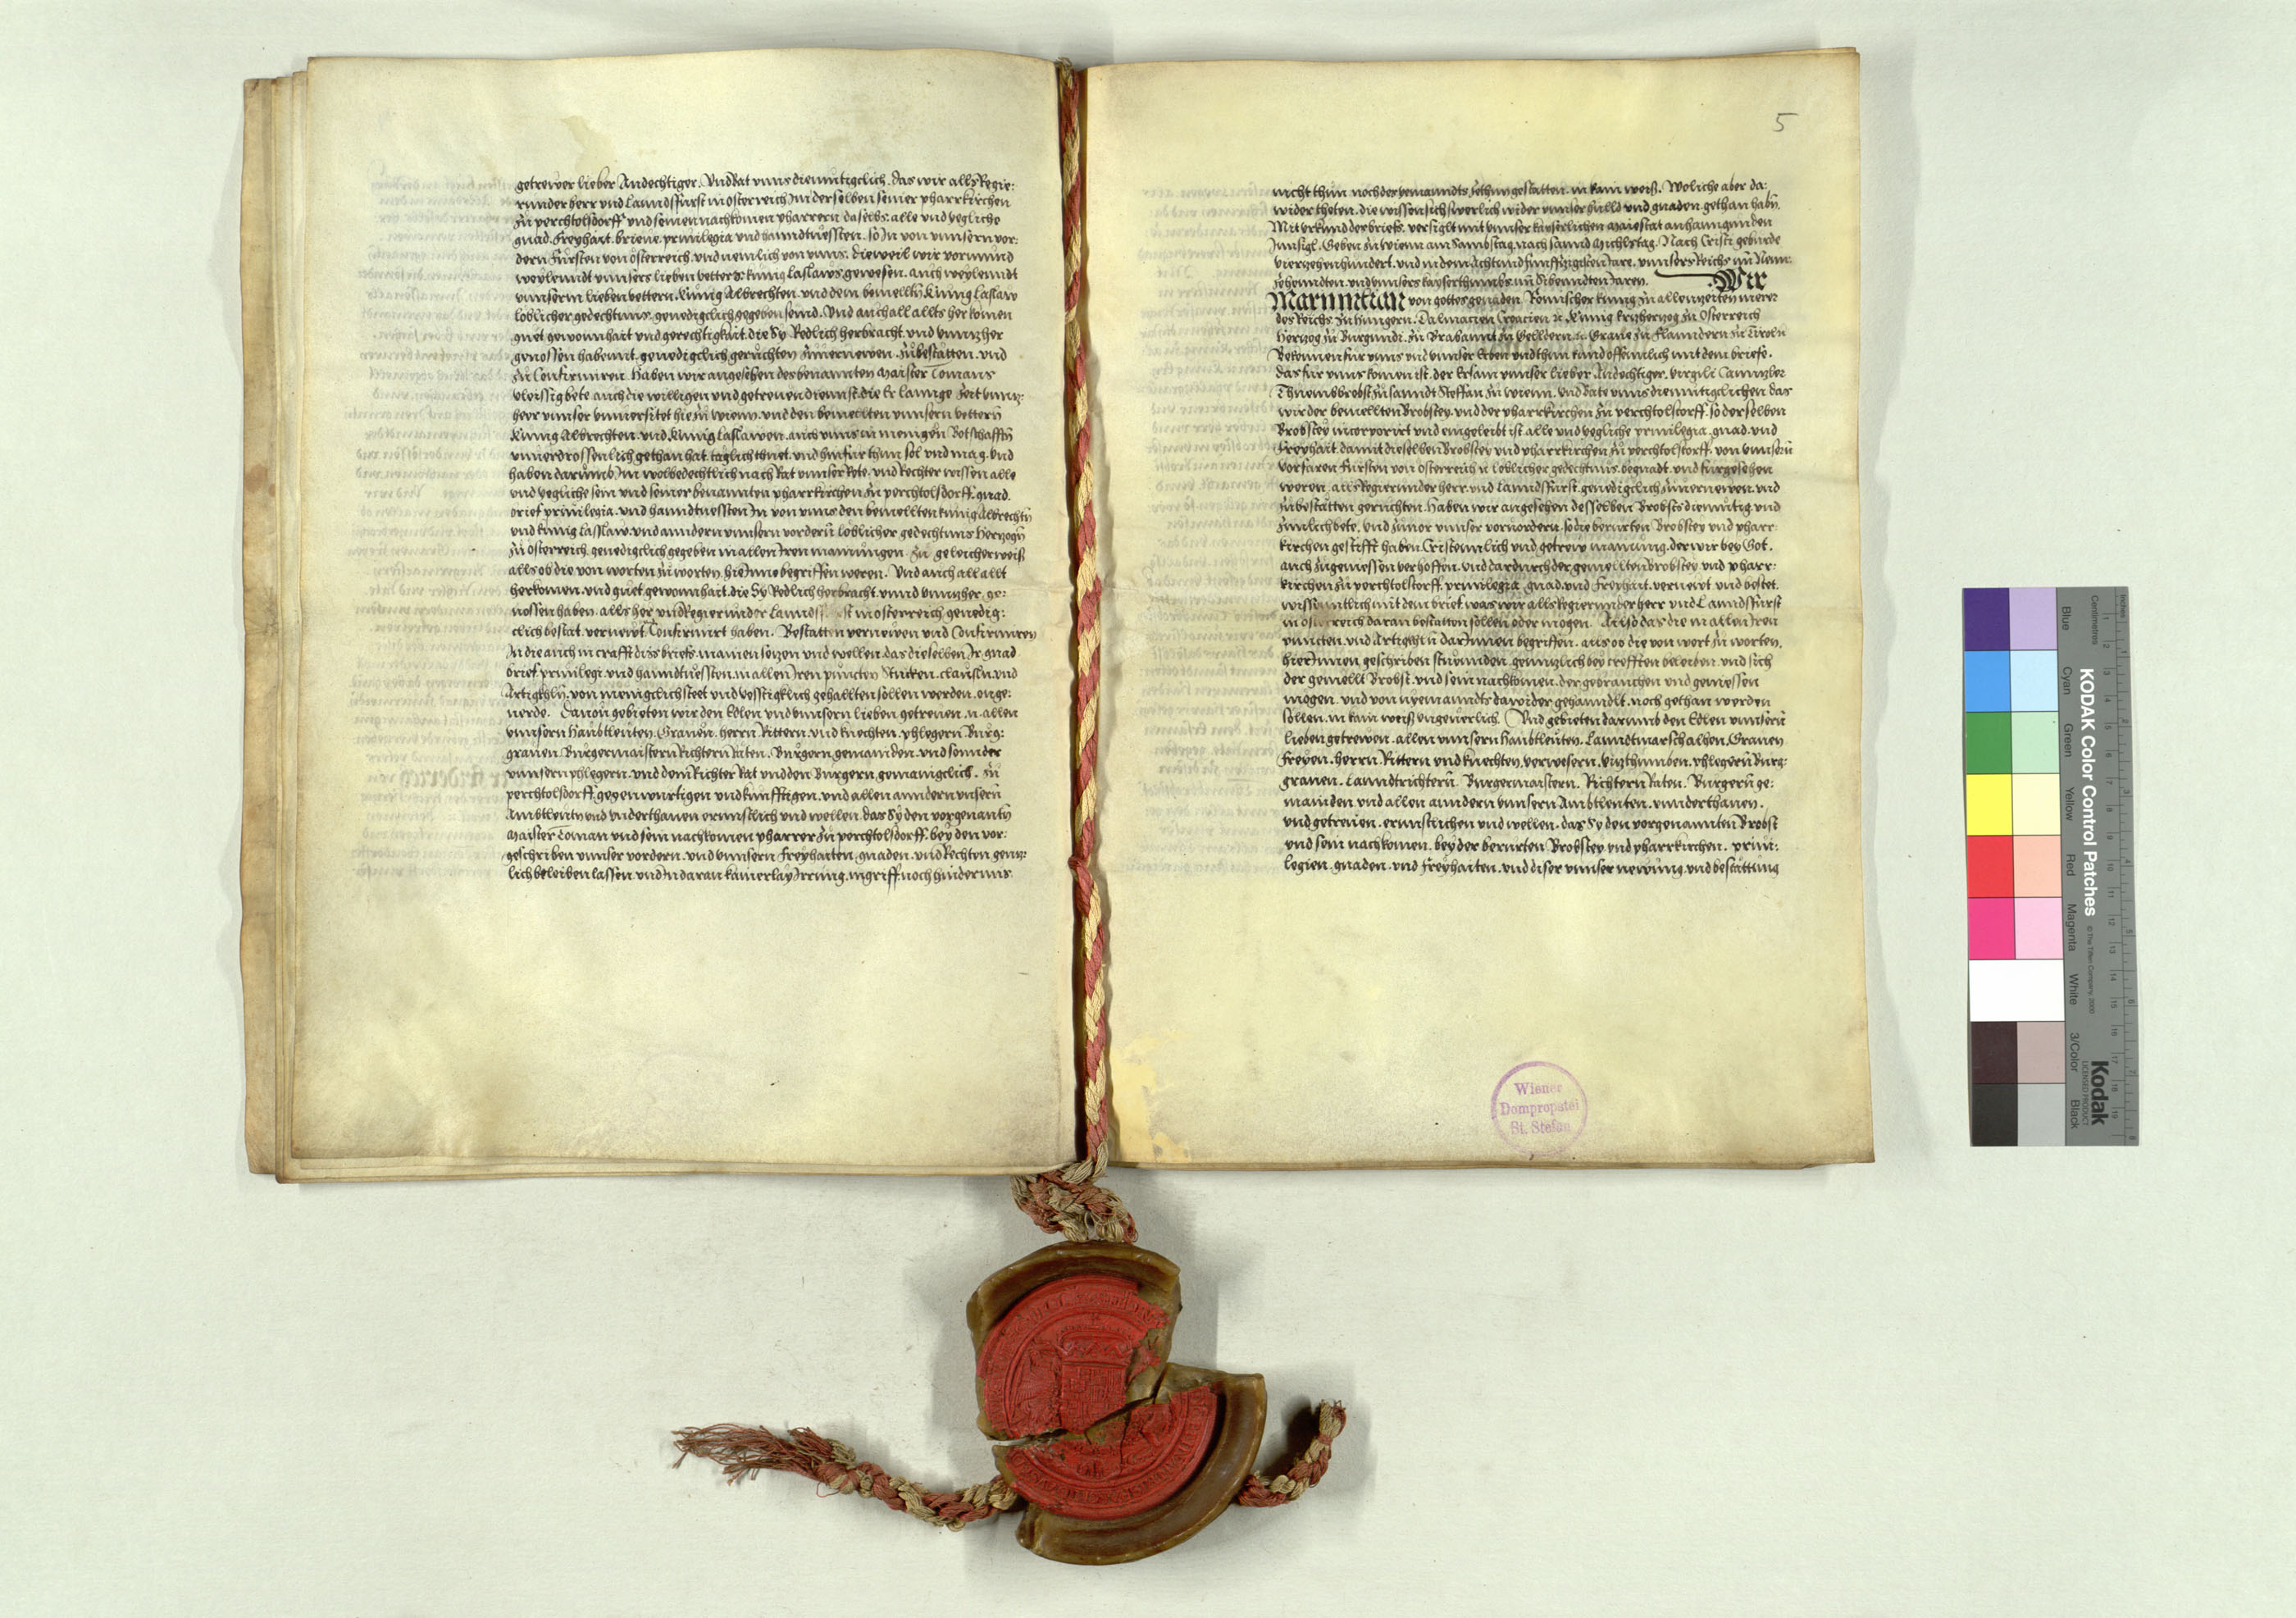 getrewer lieber Andechtiger. Vnd bat vnns diemutigclich. das wir alls Regie:
runder herr vnd Lanndsfürst in osterreich In derselben seiner pharrkirchen
zu perchtolsdorff vnd seinen nachkomen pharrern daselbs. alle vnd yegliche
gnad. freyhait. brieue. priuilegia vnd hanndtuessten. so In von vnnsern vor:
dern fürsten von osterreich. vnd nemlich von vnns. dieweil wir vormund
weylenndt vnnsers lieben vetters kunig Laslaws gewesen. auch weylenndt
vnnserm lieben vettern. kunig Albrechten. vnd dem bemellten kunig Laslaw
loblicher gedechtnus. genedigclich gegeben seind. Vnd auch all allts herkomen
guet gewonnhait vnd gerechtigkait. die Sy Redlich herbracht. vnd vnnzher
genossen haben mit. genedigclich geruchten zuuernewen. zubestatten. vnd
zu Confirmiren. Haben wir angesehen des benannten maister Tomans
vleissig bete auch die willigen vnd getreuen diennst. die Er lannge zeit vnnz:
heer vnnser vniuersitet hie zu wienn. vnd den bemellten vnnsern vettern
kunig Albrechten. vnd kunig Laslawen. auch vnns in menigen Botschafftn
vnuerdrossenlich gethan hat. taglich thuet. vnd hinfur thun sol vnd mag. vnd
haben darumb Im wolbedechtlich nach Rat vnnser Rete. vnd Rechter wissen alle
vnd yegliche sein vnd seiner benannten pharrkirchen zu perchtolsdorff. gnad.
brief priuilegia. vnd hanndtuessten In von vnns den bemellten kunig Albrechtn
vnd kunig Lasslaw. vnd anndern vnnsern vordern loblicher gedechtnus Herzogn
zu osterreich. genedigclich gegeben in allen Iren mainungen. zu geleicher weiß
alls ob die von worten zu worten. hie Inne begriffen weren. Vnd auch all allt
herkomen. vnd guet gewonnhait. die Sy Redlich herbracht. vnnd vnnzher. ge:
nossen haben. alls her vnd Regierunder Lannds st in osterreich genedig:
clich bestat. vernewt. Confirmirt haben. Bestatten vernewen vnd Confirmiren
In die auch in crafft diss briefs. mainen seczen vnd wellen. das dieselben Ir. gnad
brief priuilegi. vnd hanndtuessten. in allen Iren puncten Stucken. clauseln. vnd
Artigkhln. von menigclich steet vnd vesstigklich gehallten sollen werden. onge:
uerde. Dauon gebieten wir den Edlen vnd vnnsern lieben getreuen. n. allen
vnnsern Haubtleuten. Grauen. herrn Rittern. vnd knechten. phlegern Burg:
grauen. Burgermaistern Richtern Raten. Burgern. gemainden. vnd sonnder
vnnsern phlegern. vnd dem Richter Rat vnd den Burgern. gemainigclich. zu
perchtolsdorff. gegenwurtigen vnd kunfftigen. vnd allen anndern vnsern
Ambtleutn vnd vnderthanen ernnstlich vnd wellen. das Sy den vorgenantn
maister Toman vnd sein nachkomen pharrer zu perchtolsdorff. bey den vor:
geschriben vnnser vordern. vnd vnnsern freyhaiten. gnaden. vnd Rechten genncz:
lich beleiben lassen. vnd In daran kainerlay Irrung. ingriff noch hindernus
5
nicht thun. noch des yemanndts zethun gestatten. in kain weiß. Woliche aber da:
wider theten. die wissen sich swerlich wider vnnser hulld vnd gnaden. gethan habn.
Mit vrkund des briefs. versiglt mit vnnser kayserlichen maiestat anhanngunden
Innsigl. Geben zu Wienn am Sambstag. nach sannd michlstag. Nach Cristi geburde
vierzehenhundert. vnd in dem Achtundfunffzigisten Jare. vnnsers Reichs im Newn:
zehenndten. vnd vnnsers kayserthumbs. im Sibenndten Jaren. Wir
Maximilian von gottes genaden. Romischer kunig. zu allennzeiten merer
des Reichs. zu Hungern. Dalmacien Croacien ꝛc. kunig. Erzherzog zu Osterreich
Herzog zu Burgundi. zu Brabannt zu Gelldern ꝛc. Graue zu Flanndern zu Tiroln
Bekennen fur vnns vnd vnnser Erben vnd thun kund offennlich mit dem briefe.
das fur vnns komen ist. der Ersam vnnser lieber Andechtiger. Virgili Cannzler
Thuembbrobst zu sanndt Steffan zu wienn. vnd bate vnns diemutigclichen. das
wir der bemellten Brobstey. vnd der pharrkirchen zu perchtolstorff. so derselben
Brobstey incorporirt vnd eingeleibt ist. alle vnd yegliche priuilegia. gnad. vnd
freyhait. damit dieselben Brobstey vnd pharrkirchen zu perchtolstorff. von vnnsern
vorfaren fursten von osterreich ꝛc loblicher gedechtnus. begnadt. vnd fürgesehen
weren. alls Regierunder herr. vnd Lanndsfürst. genedigclich zuuernewen. vnd
zubestatten geruchten. Haben wir angesehen desselben Brobsts diemutig. vnd
zimlich bete. vnd zuuor vnnser voruordern. so die berurten Brobstey vnd pharr:
kirchen gestifft haben. Cristennlich vnd getrew mainung. der wir bey Got.
auch zugeniessen verhoffen. vnd dardurch der gemellten brobstey vnd pharr:
kirchen zu perchtolstorff. priuilegia. gnad. vnd freyhait. vernewt vnd bestet.
wissenntlich mit dem brief. was wir alls Regierunder herr vnd Lanndsfürst
in osterreich daran bestatten sollen oder mogen. Also das die in allen Iren
puncten. vnd Artigkhln darInnen begriffen. alls ob die von wort zu worten.
hierInnen geschriben stuennden. genntzlich bey crefften beleiben. vnd sich
der gemellt Brobst. vnd sein nachkomen. der gebrauchen vnd geniessen
mogen. vnd von nyemanndts dawider gehanndlt. noch gethan werden
sollen. in kain weiß vngeuerlich. Vnd gebieten darumb den Edlen vnnsern
lieben getrewen. allen vnnsern Haubtleuten. Lanndtmarschalhen. Grauen
freyen. herrn. Rittern vnd knechten. verwesern. viczthumben. phlegern Burg:
grauen. Lanndtrichtern. Burgermaistern. Richtern Raten. Burgern ge:
mainden vnd allen anndern vnnsern Ambtleuten. vnnderthanen.
vnd getreuen. ernnstlichen vnd wellen. das Sy den vorgenannten Brobst
vnd sein nachkomen. bey der berurten Brobstey vnd pharrkirchen. priui:
legien. gnaden. vnd freyhaiten. vnd diser vnnser newung. vnd bestättung
Wiener
Dompropstei
St. Stefan
KODAK Color Control Patches
© The Tiffen Company, 2000
Kodak
LICENSED PRODUCT
Inches
Centimetres
Blue
Cyan
Green
Yellow
Red
Magenta
White
3/Color
Black